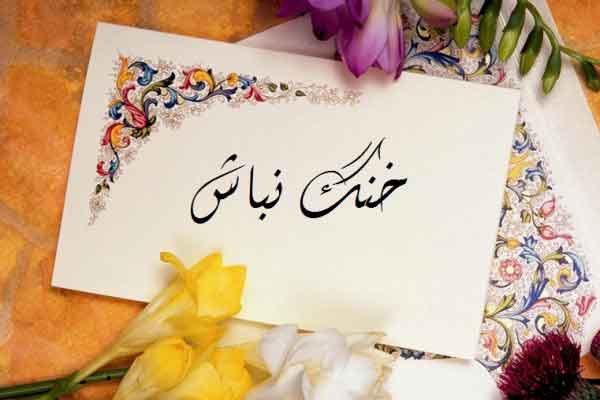 خنک نباش